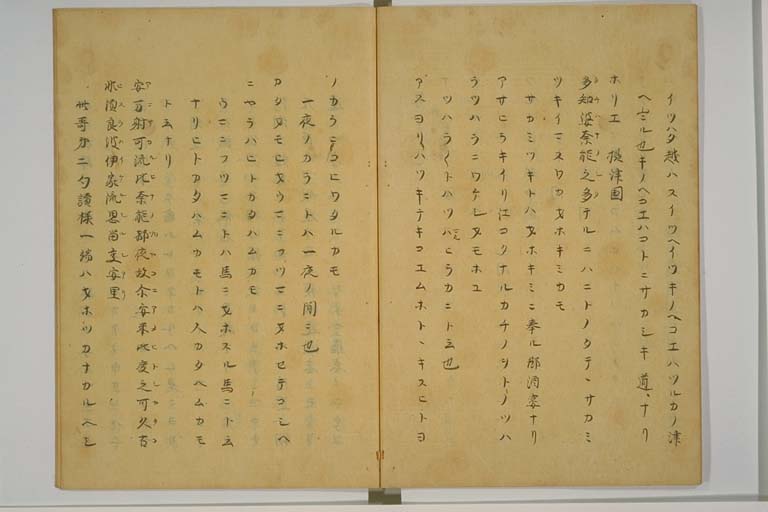 イツハタ越ハスイツヘイツキノヘコエハツルカノ津
ヘ出ル也キノヘコエハコトニサカシキ道ヽナリ
ホリエ 摂津国
多知婆奈能之多テルニハニトノタテヽサカミ
ツキイマスワカオホキミカモ
サカミツキトハオホキミニ奉ル郡酒宴ナリ
アサヒラキイリ江コクナルカチノヲトノツハ
ラツハラニワケレオモホユ
ツハラ〱トハツハヒラカニト云也
アスヨリハツキテキコエムホトヽキスヒトヨ
ノカラニコヒワタルカモ
一夜ノカラニトハ一夜ノ間ニ也
カタオモヒヲウマニフツマニオホセテコシヘ
ニヤラハヒトカタハムカモ
ウマニフツマニトハ馬ニオホスル馬ニト云
ナリヒトカタハムカモトハ人カタヘムカモ
ト云ナリ
安万射可流比奈能都夜故余安米比度之可久古
非須良波伊家流思留事安里
此哥カニ勺讃様一端ハオホツカナカルヘシ